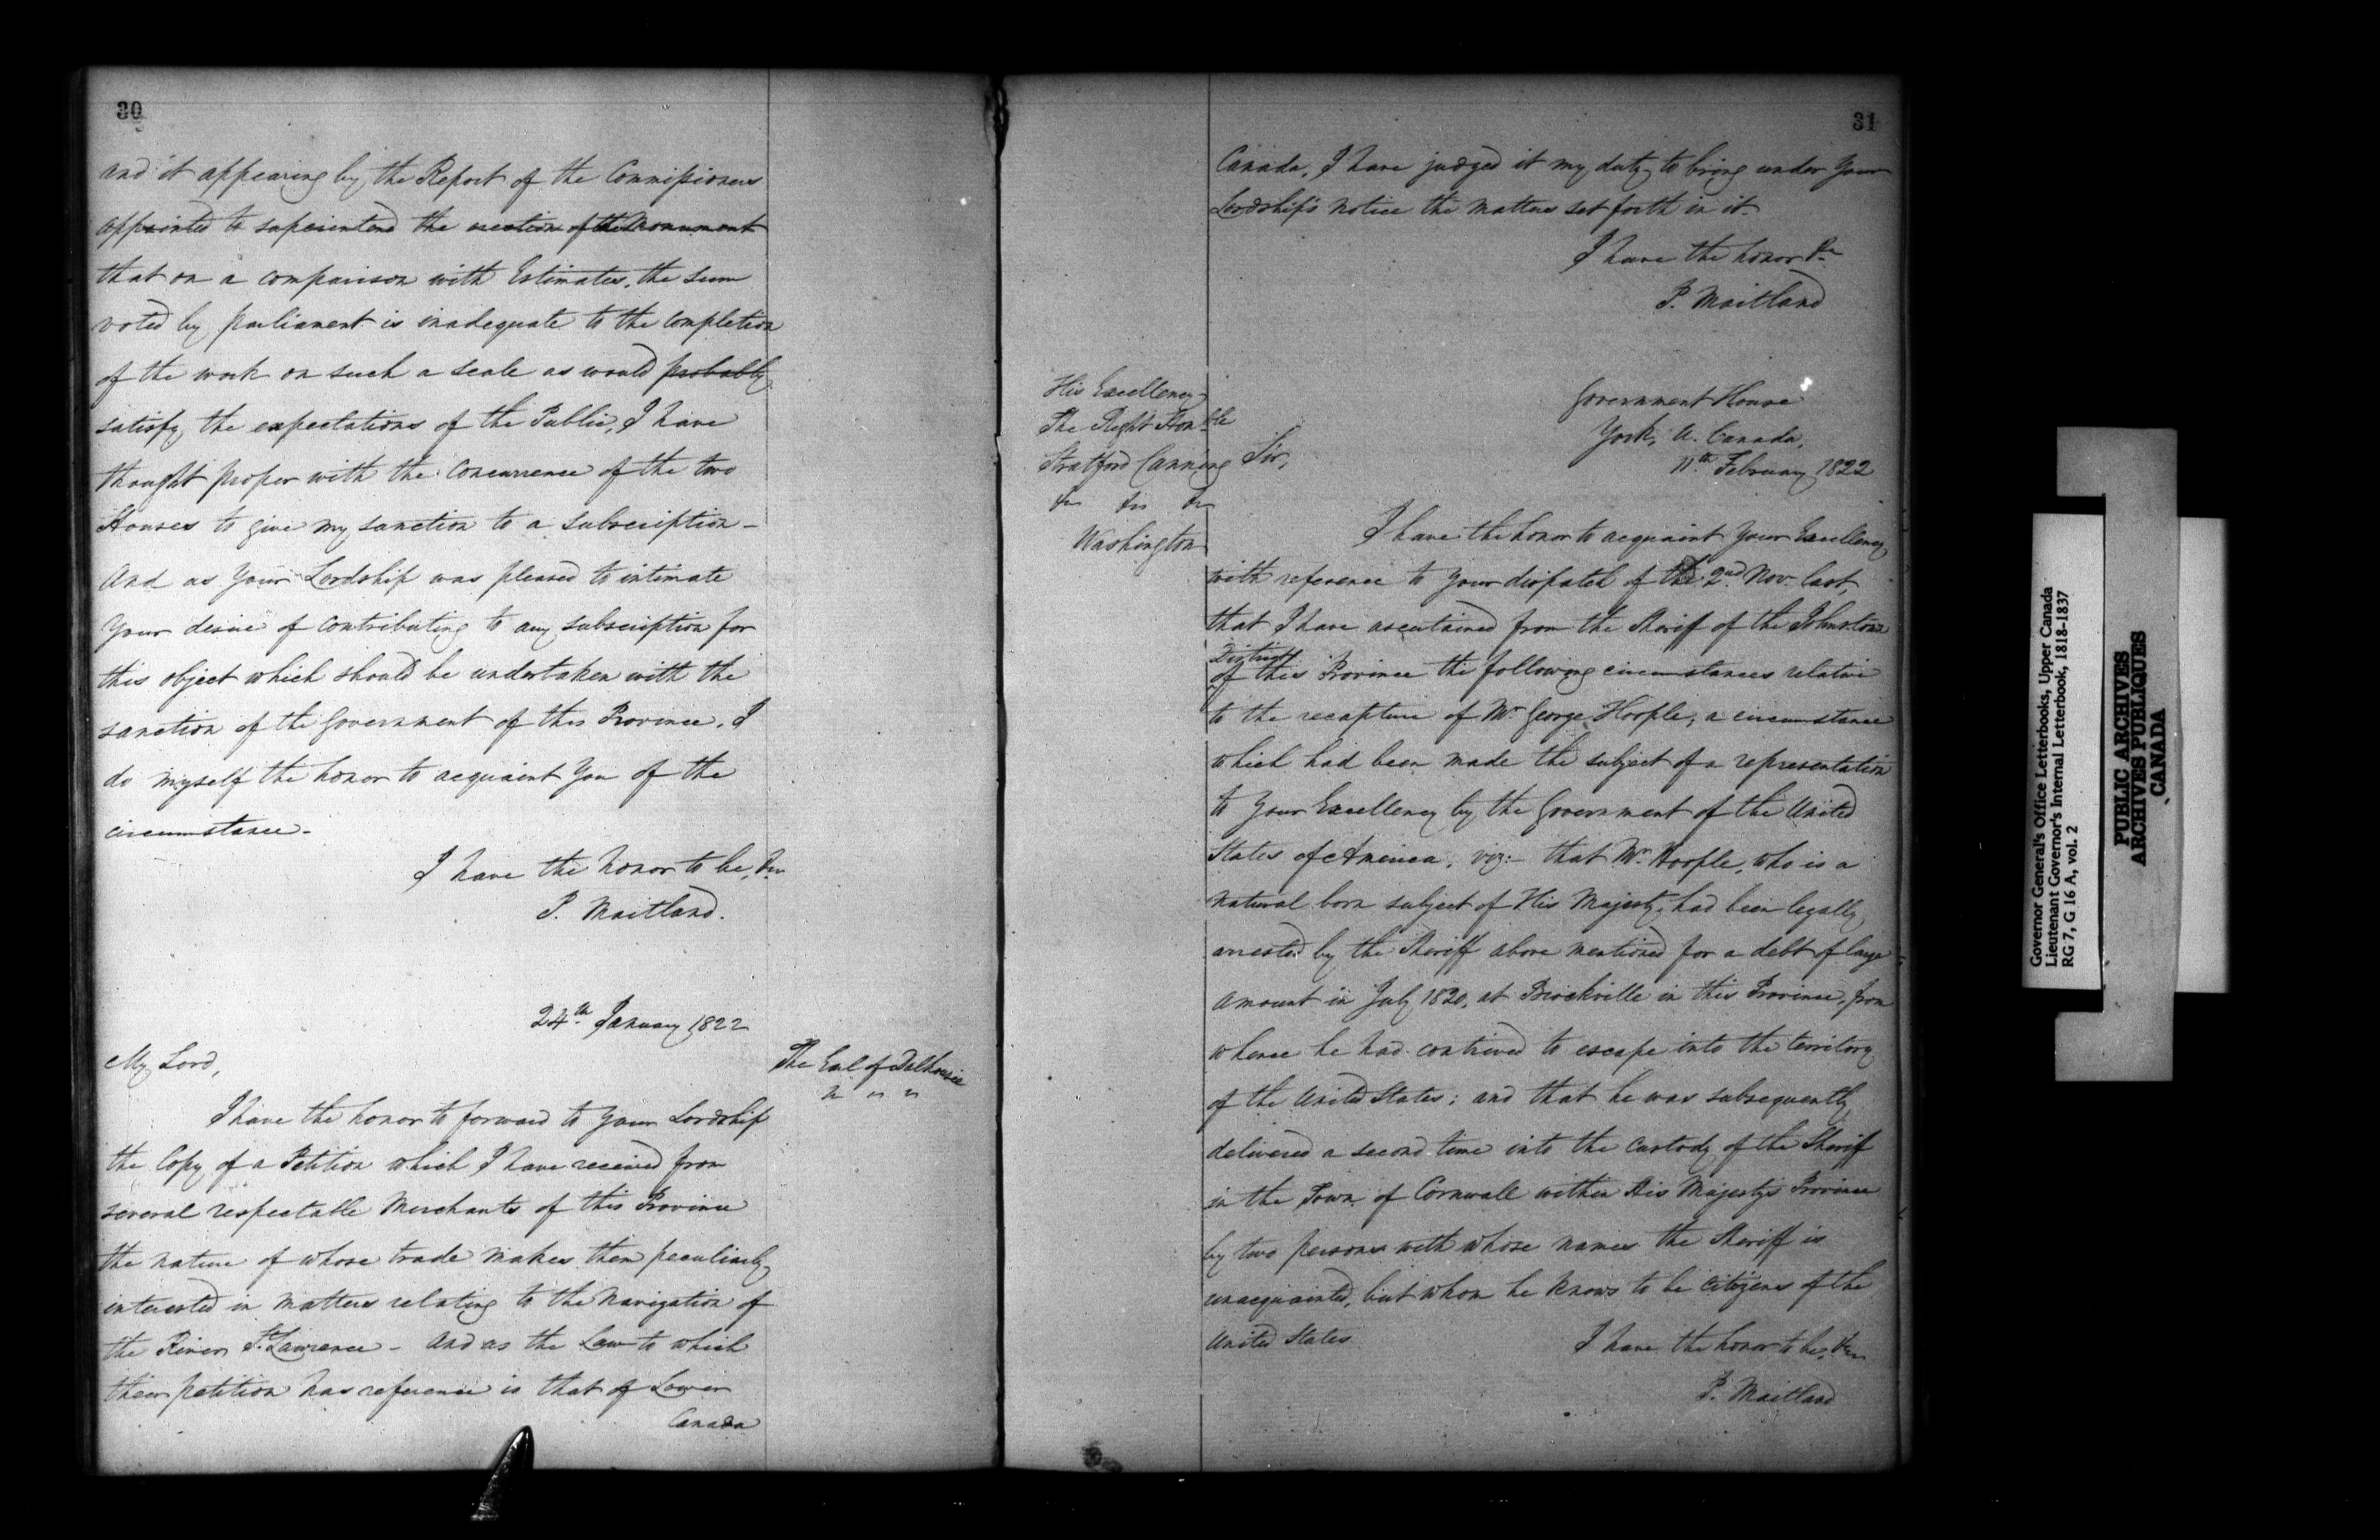 30
and it appearing by the Report of the Commissioners
appointed to superintend the erection of the Monument
that on a comparison with Estimates, the sum
voted by parliament is inadequate to the completion
of the work on such a scale as would probably
satisfy the expectations of the Public, I have
thought proper with the concurrence of the two
Houses to give my sanction to a subscription -
And as Your Lordship was pleased to intimate
Your desire of contributing to any subscription for
this object which should be undertaken with the
sanction of the Government of this Province, I
do myself the honor to acquaint You of the
circumstance -
I have the honor to be, &c
P. Maitland.
24th January 1822
My Lord,
The Earl of Dalhousie
" " "
I have the honor to forward to Your Lordship
the Copy of a Petition which I have received from
several respectable Merchants of this Province
the nature of whose trade makes them peculiarly
interested in matters relating to the Navigation of
the River St. Lawrence - And as the Law to which
their petition has reference is that of Lower
Canada
31
Canada, I have judged it my duty to bring under Your
Lordship's notice the matters set forth in it.
I have the honor &c
P. Maitland
His Excellency
The Right Honble
Stratford Canning
&c &c &c
Washington
Government House
York, U. Canada,
11th February 1822
Sir,
I have the honor to acquaint Your Excellency
with reference to Your dispatch of the 2nd Nov. last,
that I have ascertained from the Sheriff of the Johnstown
District
of this Province the following circumstances relative
to the recapture of Mr George Hoople, a circumstance
which had been made the subject of a representation
to Your Excellency by the Government of the United
States of America, viz:- that Mr. Hoople, who is a
natural born subject of His Majesty, had been legally
arrested by the Sheriff above mentioned for a debt of large
amount in July 1820, at Brockville in this Province, from
whence he had contrived to escape into the territory
of the United States; and that he was subsequently
delivered a second time into the custody of the Sheriff
in the Town of Cornwall within His Majesty's Province
by two persons with whose names the Sheriff is
unacquainted, but whom he knows to be citizens of the
United States
I have the honor to be, &c
P. Maitland
Governor General's Office Letterbooks, Upper Canada
Lieutenant Governor's Internal Letterbook, 1818-1837
RG 7, G 16 A, vol. 2
PUBLIC ARCHIVES
ARCHIVES PUBLIQUES
CANADA